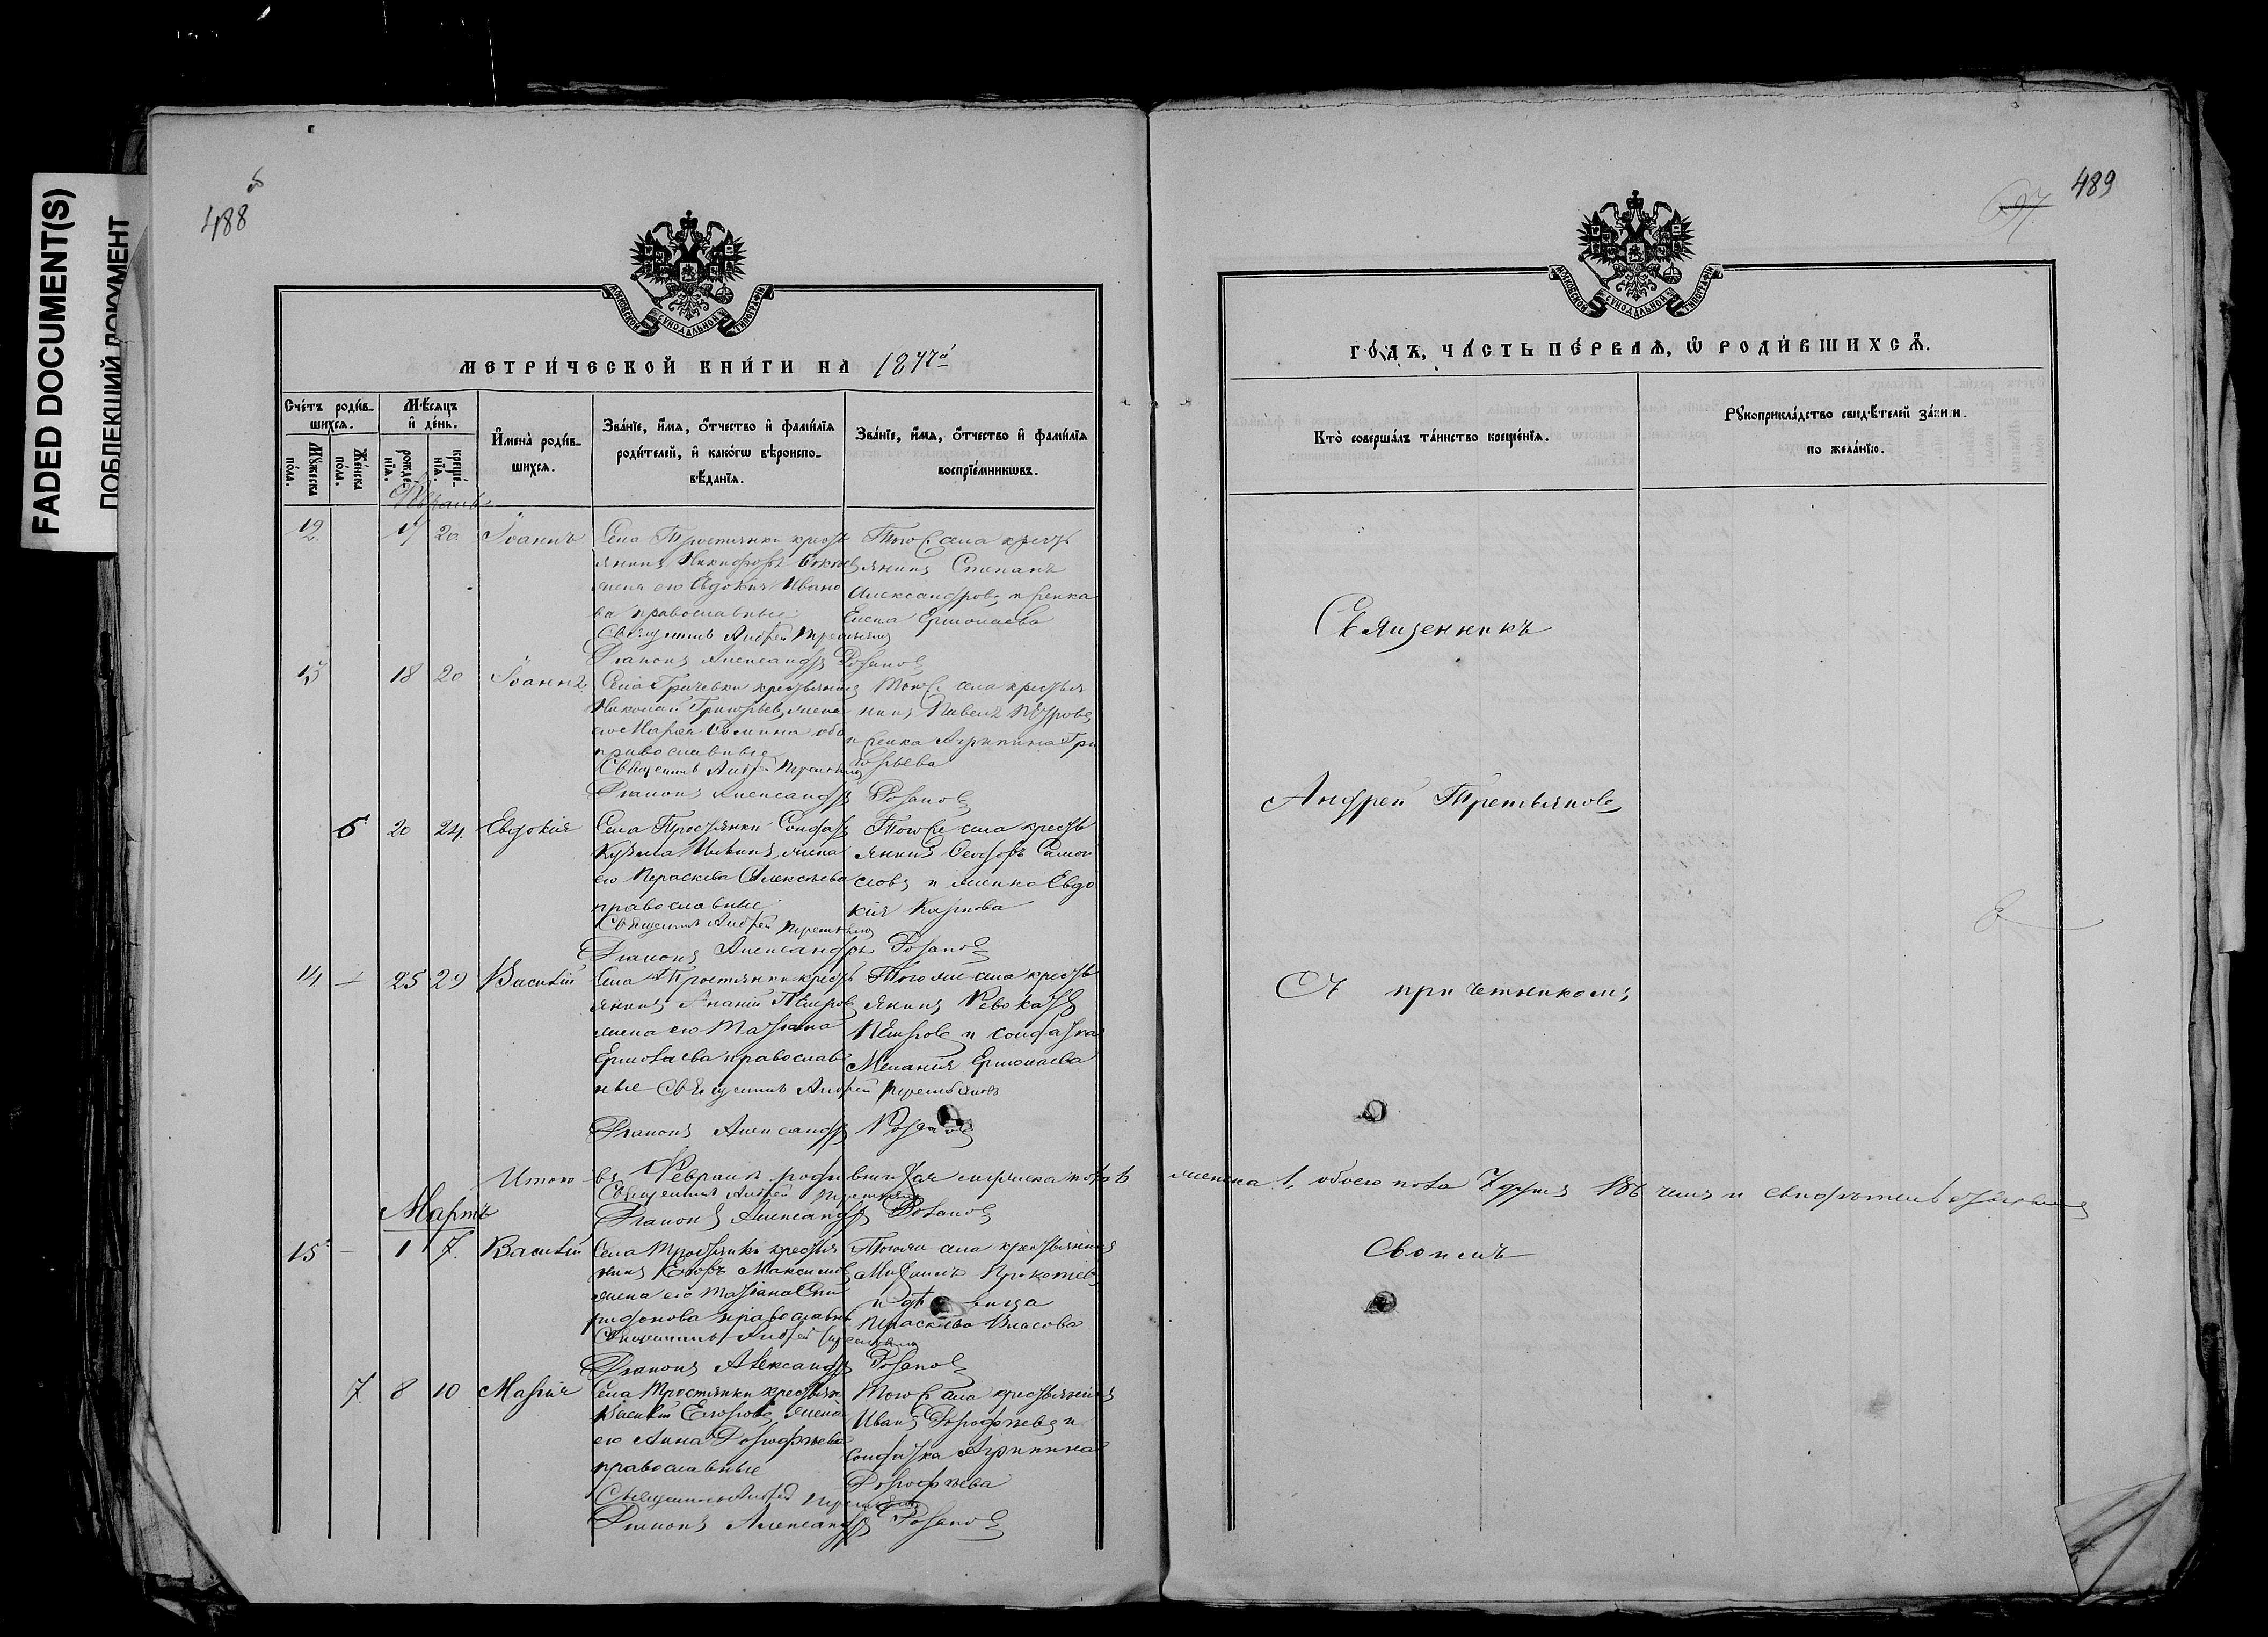 FADED DOCUMENT(S)
ПОБЛЕКШИЙ ДОКУМЕНТ
488
489
МОСКОВСКОЙ СѴНОДАЛЬНОЙ ТИПОГРАФІИ
МЕТРИ́ЧЕСКОЙ КНИ́ГИ НА
Сче́тъ роди́в-
шихсѧ.
Мꙋ́жеска по́ла.
Же́нска по́ла.
Мѣ́сѧцъ и҆ де́нь.
рожде́-нїѧ.
креще́-нїѧ.
И҆мена̀ роди́в-
шихсѧ.
Зва́нїе, и҆́мѧ, ѻ҆́тчество и҆ фами́лїѧ
роди́телей, и҆ како́гѡ вѣроиспо-
вѣ́данїѧ.
Зва́нїе, и҆́мѧ, ѻ҆́тчество и҆ фами́лїѧ
воспрїе́мникѡвъ.
12 17 20 Іоаннъ
Села Тростянки кресть
янинъ Никифоръ
жена его Евдокия Ивано
ва православные
Священникъ Андрей Третьяковъ
Диаконъ Александръ Розановъ
кресть
янинъ Степанъ
Александровъ и
Елена Ермолаева
13 18 20 Іоаннъ
Села Грачевки крестьянинъ
Николай Григорьевъ жена
его Мария Фомина оба
православные
Священникъ Андрей Третьяковъ
Диаконъ Александръ Розановъ
села крестья
нинъ Павелъ Петровъ
Агрипина Гри
горьева
6 20 24 Евдокия
Села Тростянки Солдатъ
Кузьма жена
его Параскева Алексѣева
православные
Священникъ Андрей Третьяковъ
Диаконъ Александръ Розановъ
села кресть
янинъ Федоръ Самой
ловъ и женка Евдо
кия Карпова
14 — 25 29 Василій
Села Тростянки кресть
янинъ Ананій Петровъ
жена его Татіана
Ермолаева православ
ные Священникъ Андрей Третьяковъ
Диаконъ Александръ Розановъ
Того же села кресть
янинъ
Петровъ и солдатка
Мелания Ермолаева
Итого въ Февралѣ
Священникъ Андрей Третьяковъ
Диаконъ Александръ Розановъ
Мартъ
15 — 1 7 Василій
Села Тростянки крестья
нинъ Егоръ Максимовъ
жена его Татіана Спи
ридонова православные
Священникъ Андрей Третьяковъ
Диаконъ Александръ Розановъ
села крестьянинъ
Михаилъ Прокопьевъ
и дѣвица
Параскева Власова
7 8 10 Мария
Села Тростянки крестьян
Василій Егоровъ жена
его Анна Дорофѣева
православные
Священникъ Андрей Третьяковъ
Диаконъ Александръ Розановъ
села крестьянинъ
Иванъ Дорофѣевъ и
солдатка Агрипина
Дорофѣева
ГО́ДЪ, ЧА́СТЬ ПЕ́РВАѦ, Ѡ҆ РОДИ́ВШИХСѦ.
Кто̀ соверша́лъ та́инство креще́нїѧ.
Рꙋкоприкла́дство свидѣ́телей за́писи
по жела́нїю.
Священникъ
Андрей Третьяковъ
Съ причетникомъ
женска 1, обоего пола 7
Своимъ